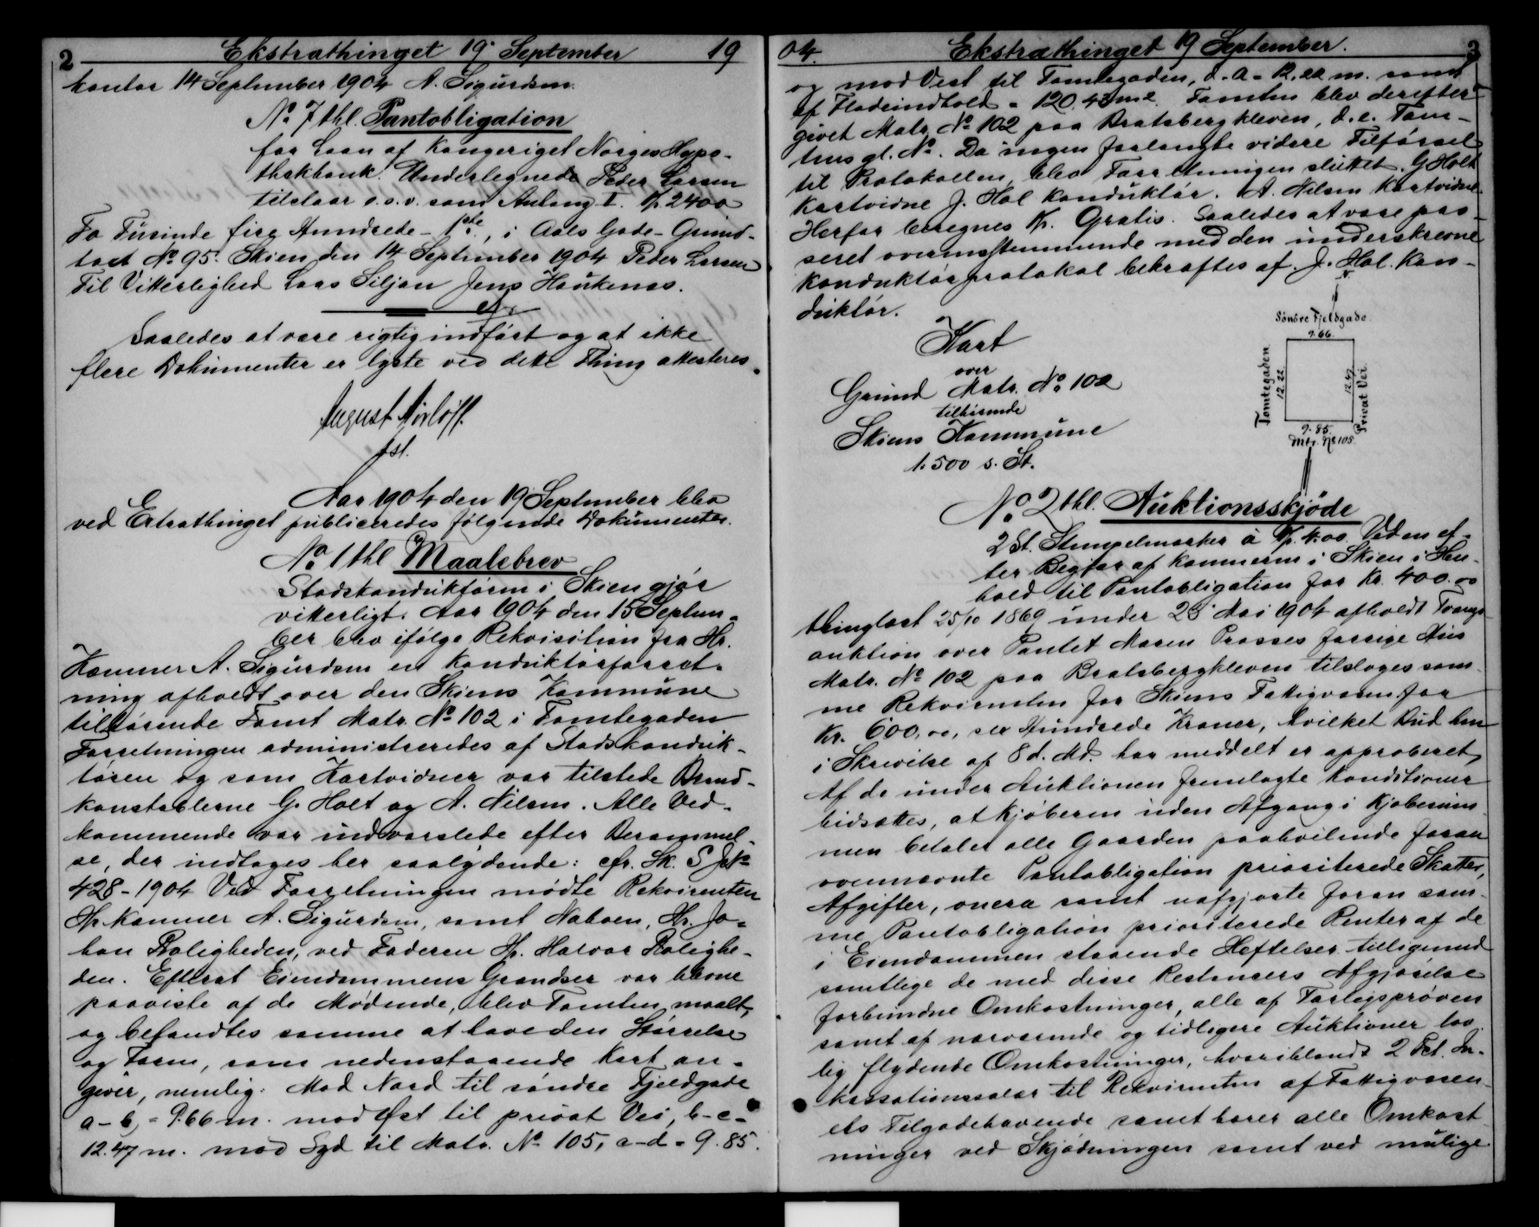 2 Ekstrathinget 19' September 19
kontor 14 September 1904 A. Sigurdsen.
No 7 thl. Pantobligation
for Laan af Kongeriget Norges Hypo-
thekbank. Undertegnede Peder Larsen
tilstaar o.s.v. som Anlæg I. Kr. 2400
To Tusinde fire Hundrede – 1ste Pr., i Aals Gade – Grund-
taxt No 95. Skien den 14 September 1904 Peder Larsen
Til Vitterlighed Lars Siljan Jens Haukenæs.
Saaledes at være rigtig indført og at ikke
flere Dokumenter er lyste ved dette Thing attesteres.
August Nørløff.
fst.
Aar 1904 den 19 September blev
ved Extrathinget publiceredes følgende Dokumenter.
No 1 thl Maalebrev
Stadskonduktøren i Skien gjør
vitterligt: Aar 1904 den 15 Septem-
ber blev ifølge Rekvisition fra Hr.
Kæmner A. Sigurdsen en Konduktørforret-
ning afholdt over den Skiens Kommune
tilhørende Tomt Matr. No 102 i Tomtegaden
Forretningen administreredes af Stadskonduk-
tøren og som Kartvidner var tilstede Brand-
konstablerne G. Holt og A. Nilsen. Alle Ved-
kommende var indvarslede efter Berammel-
se, der indtages her saalydende: cfr. Sk. S JNo
428 - 1904 Ved Forretningen mødte Rekvirenten
Hr. Kæmner A. Sigurdsen, samt Naboen, Hr. Jo-
han Roligheden, ved Faderen Hr. Halvor Rolighe-
den. Efterat Eiendommens Grændser var blevne
paaviste af de Mødende, blev Tomten maalt,
og befandtes samme at have den Størrelse
og Form, som nedenstaaende Kart an-
giver, nemlig: Mod Nord til søndre Fjeldgade
a-b, = 9.66 m. mod Øst til privat Vei, b-c =
12.47 m. mod Syd til Matr. No 105, c-d = 9.85.
04. Ekstrathinget 19 September. 3
og mod Vest til Tomtegaden, d.a = 12,22 m. samt
af Fladeindhold = 120.43 m2. Tomten blev derefter
givet Matr. No 102 paa Bratsbergkleven, d.e. Tom-
tens gl. No. Da ingen forlangte videre Tilførsel
til Protokollen, blev Forretningen sluttet. G Holt
Kartvidne J. Hol Konduktør. A. Nilsen Kartvidne.
Herfor beregnes Kr. Gratis. Saaledes at være pas-
seret overensstemmende med den underskrevne
Konduktørprotokol bekræftes af J. Hol. Kon-
duktør.
Kart
over
Grund Matr. No 102
tilhørende
Skiens Kommune
1:500 s. St.
N
Söndre Fjeldgade.
9.66
Tomtegaden
12.22
12.47
Privat Vei.
9.85
Mtr. No 105.
No 2 thl. Auktionsskjøde
2 St. Stempelmærker à Kr. 4.00. Ved en ef-
ter Begjær af Kæmneren i Skien i Hen-
hold til Pantobligation for Kr. 400.00
thinglæst 25/10 1869 under 25' Mai 1904 afholdt Tvangs-
auktion over Pantet Maren Prosses forrige Hus
Matr. No 102 paa Bratsbergkleven tilsloges sam-
me Rekvirenten for Skiens Fattigvæsen for
Kr. 600.00, sex Hundrede Kroner, hvilket Bud han
i Skrivelse af 8 d. Md. har meddelt er approberet,
Af de under Auktionen fremlagte Konditioner
hidsættes, at Kjøberen uden Afgang i Kjøbesum-
men betaler alle Gaarden paahvilende foran
ovennævnte Pantobligation prioriterede Skatter,
Afgifter, onera samt uafgjorte foran sam-
me Pantobligation prioriterede Renter af de
i Eiendommen staaende Heftelser tilligemed
samtlige de med disse Restancers Afgjørelse
forbundne Omkostninger, alle af Forligsprøven
samt af nærværende og tidligere Auktioner lov-
lig flydende Omkostninger, hvoriblandt 2 Pct. In-
kassationssalær til Rekvirenten af Fattigvæsen-
ets Tilgodehavende samt bærer alle Omkost-
ninger ved Skjødningen samt ved mulige